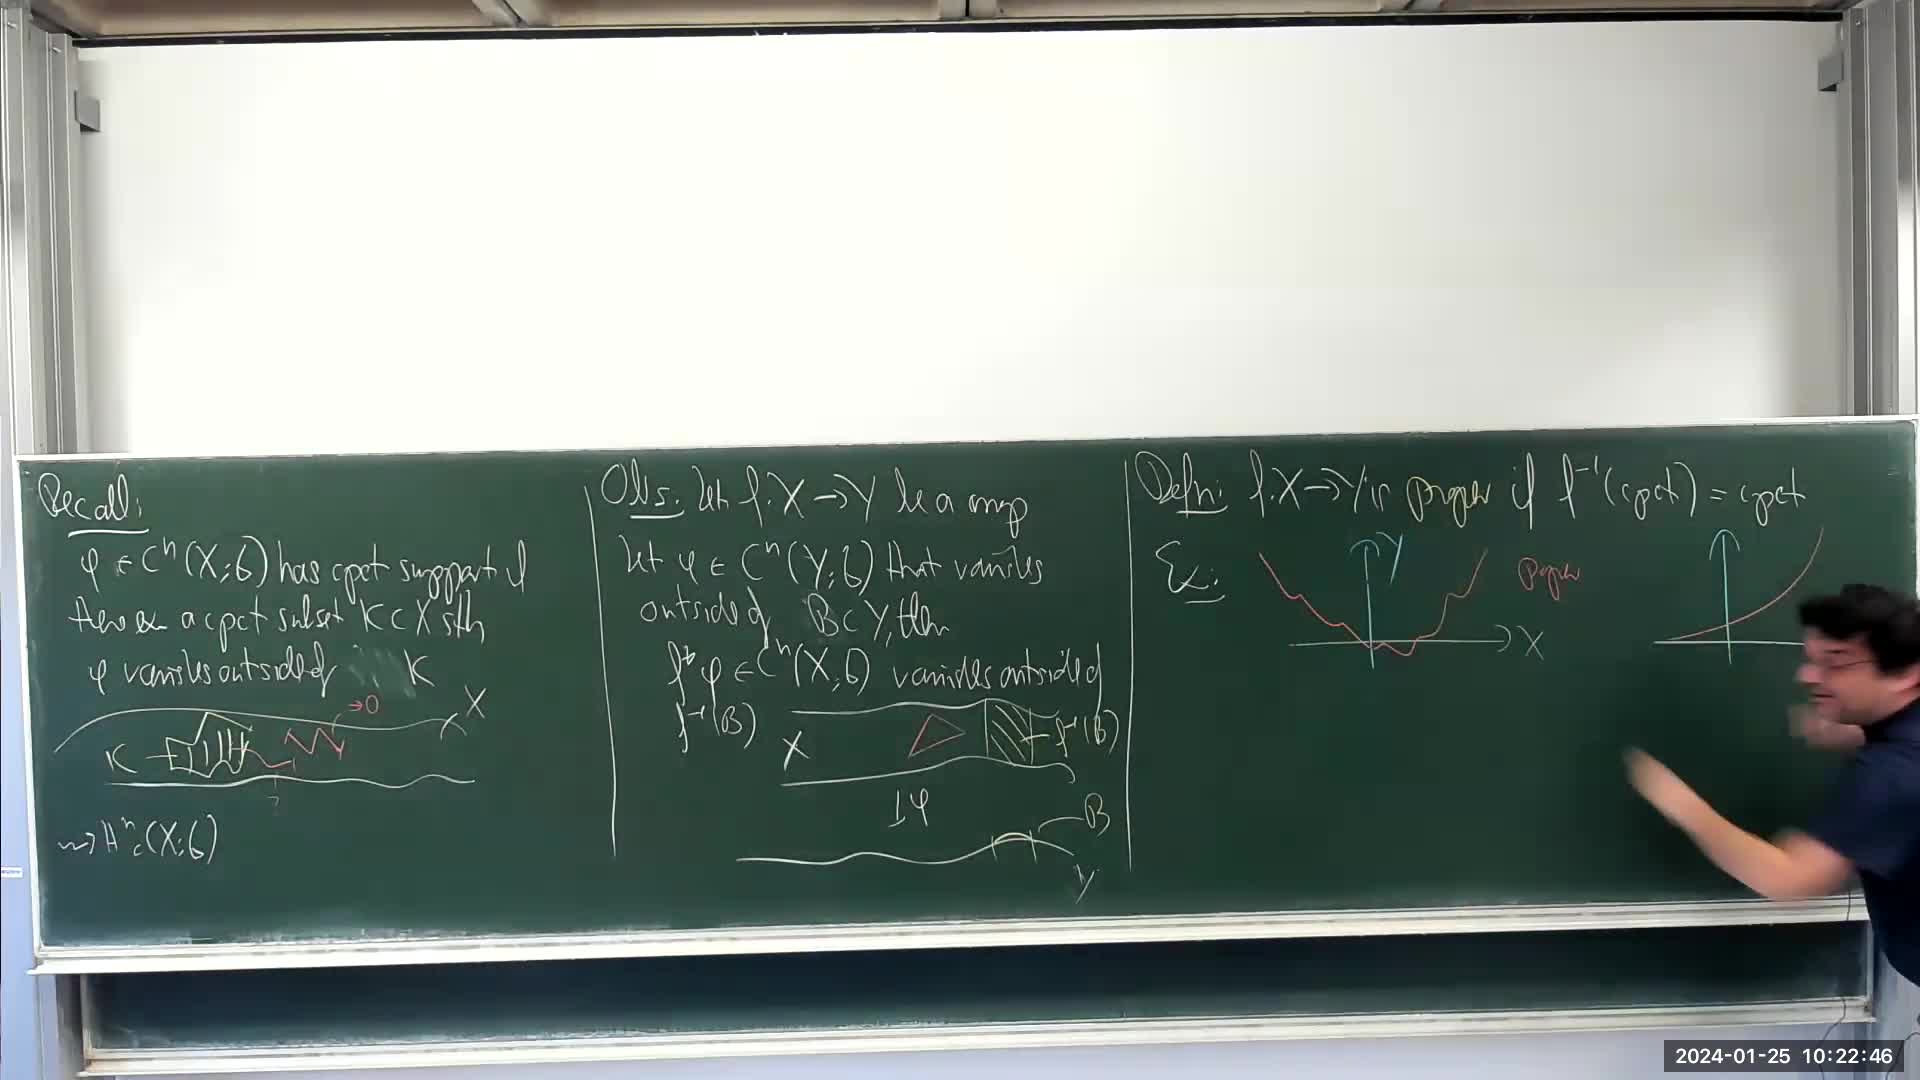 Recall:
φ ∈ Cⁿ(X;G) has cpct support if
there ex a cpct subset K ⊂ X s.th
φ vanishes outside of K
X
→0
K
?
⇝ Hⁿ_c(X;G)
Obs: Let f: X → Y be a map
Let φ ∈ Cⁿ(Y;G) that vanishes
outside of B ⊂ Y, then
f*φ ∈ Cⁿ(X;G) vanishes outside of
f⁻¹(B)
X
f⁻¹(B)
↓φ
B
Y
Defn: f: X → Y is proper if f⁻¹(cpct) = cpct
Ex:
Y
proper
X
2024-01-25 10:22:46